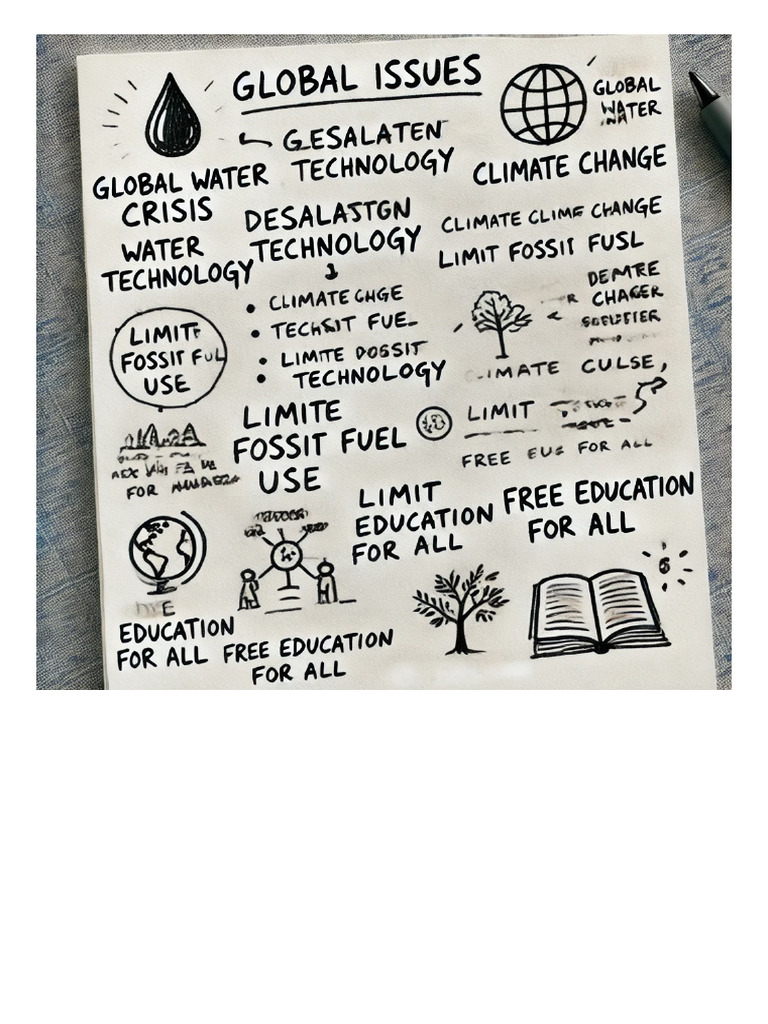 GLOBAL ISSUES
GLOBAL
WATER
GESALATEN
TECHNOLOGY
CLIMATE CHANGE
GLOBAL WATER
CRISIS
DESALASTGN
TECHNOLOGY
WATER
TECHNOLOGY
CLIMATE CLIME CHANGE
LIMIT FOSSIT FUSL
• CLIMATE GHGE
• TECHSIT FUEL
• LIMITE DOGSIT
• TECHNOLOGY
DEMTRE
CHAGER
LIMIT
FOSSIT FUL
USE
IMATE CULSE,
LIMITE
FOSSIT FUEL
USE
LIMIT
FREE EUS FOR ALL
FOR
LIMIT
EDUCATION
FOR ALL
FREE EDUCATION
FOR ALL
EDUCATION
FOR ALL
FREE EDUCATION
FOR ALL